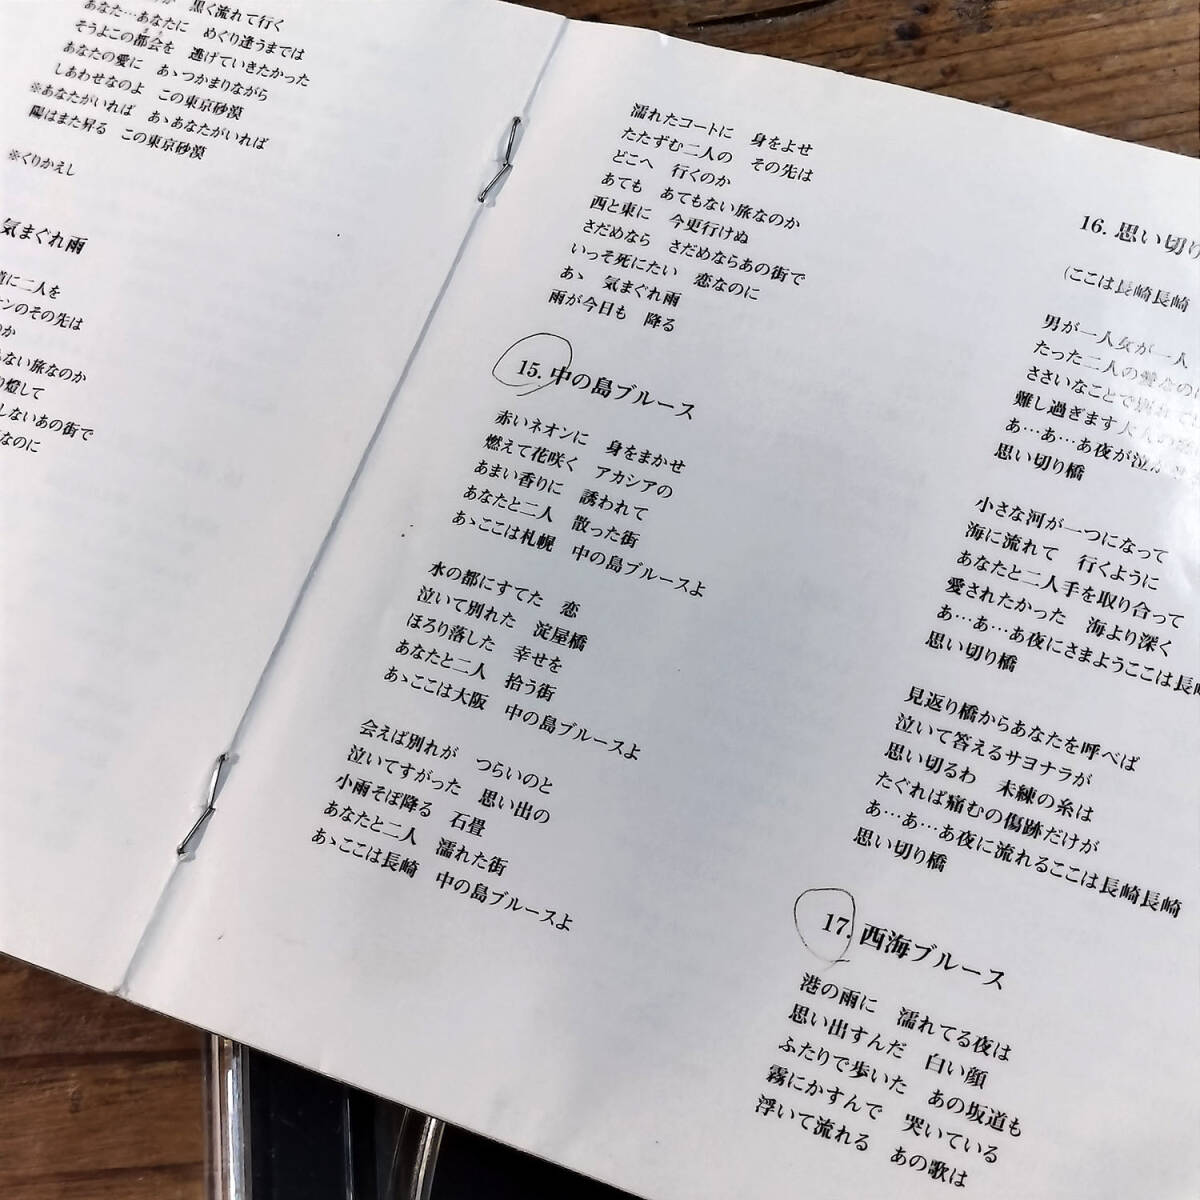 黒く流れて行く
あなた…あなたに　めぐり逢うまでは
そうよこの都会を　逃げていきたかった
あなたの愛に　あゝつかまりながら
しあわせなのよ　この東京砂漠
※あなたがいれば　あゝあなたがいれば
陽はまた昇る　この東京砂漠
※くりかえし
気まぐれ雨
に二人を
ンのその先は
のか
ない旅なのか
り燈して
しないあの街で
なのに
濡れたコートに　身をよせ
たたずむ二人の　その先は
どこへ　行くのか
あても　あてもない旅なのか
西と東に　今更行けぬ
さだめなら　さだめならあの街で
いっそ死にたい　恋なのに
あゝ　気まぐれ雨
雨が今日も　降る
15. 中の島ブルース
赤いネオンに　身をまかせ
燃えて花咲く　アカシアの
あまい香りに　誘われて
あなたと二人　散った街
あゝここは札幌　中の島ブルースよ
水の都にすてた　恋
泣いて別れた　淀屋橋
ほろり落した　幸せを
あなたと二人　拾う街
あゝここは大阪　中の島ブルースよ
会えば別れが　つらいのと
泣いてすがった　思い出の
小雨そぼ降る　石畳
あなたと二人　濡れた街
あゝここは長崎　中の島ブルースよ
16. 思い切り
(ここは長崎長崎
男が一人女が一人
たった二人の
ささいなことで
難し過ぎます
あ…あ…あ夜が泣
思い切り橋
小さな河が一つになって
海に流れて　行くように
あなたと二人手を取り合って
愛されたかった　海より深く
あ…あ…あ夜にさまようここは長崎
思い切り橋
見返り橋からあなたを呼べば
泣いて答えるサヨナラが
思い切るわ　未練の糸は
たぐれば痛むの傷跡だけが
あ…あ…あ夜に流れるここは長崎長崎
思い切り橋
17. 西海ブルース
港の雨に　濡れてる夜は
思い出すんだ　白い顔
ふたりで歩いた　あの坂道も
霧にかすんで　哭いている
浮いて流れる　あの歌は